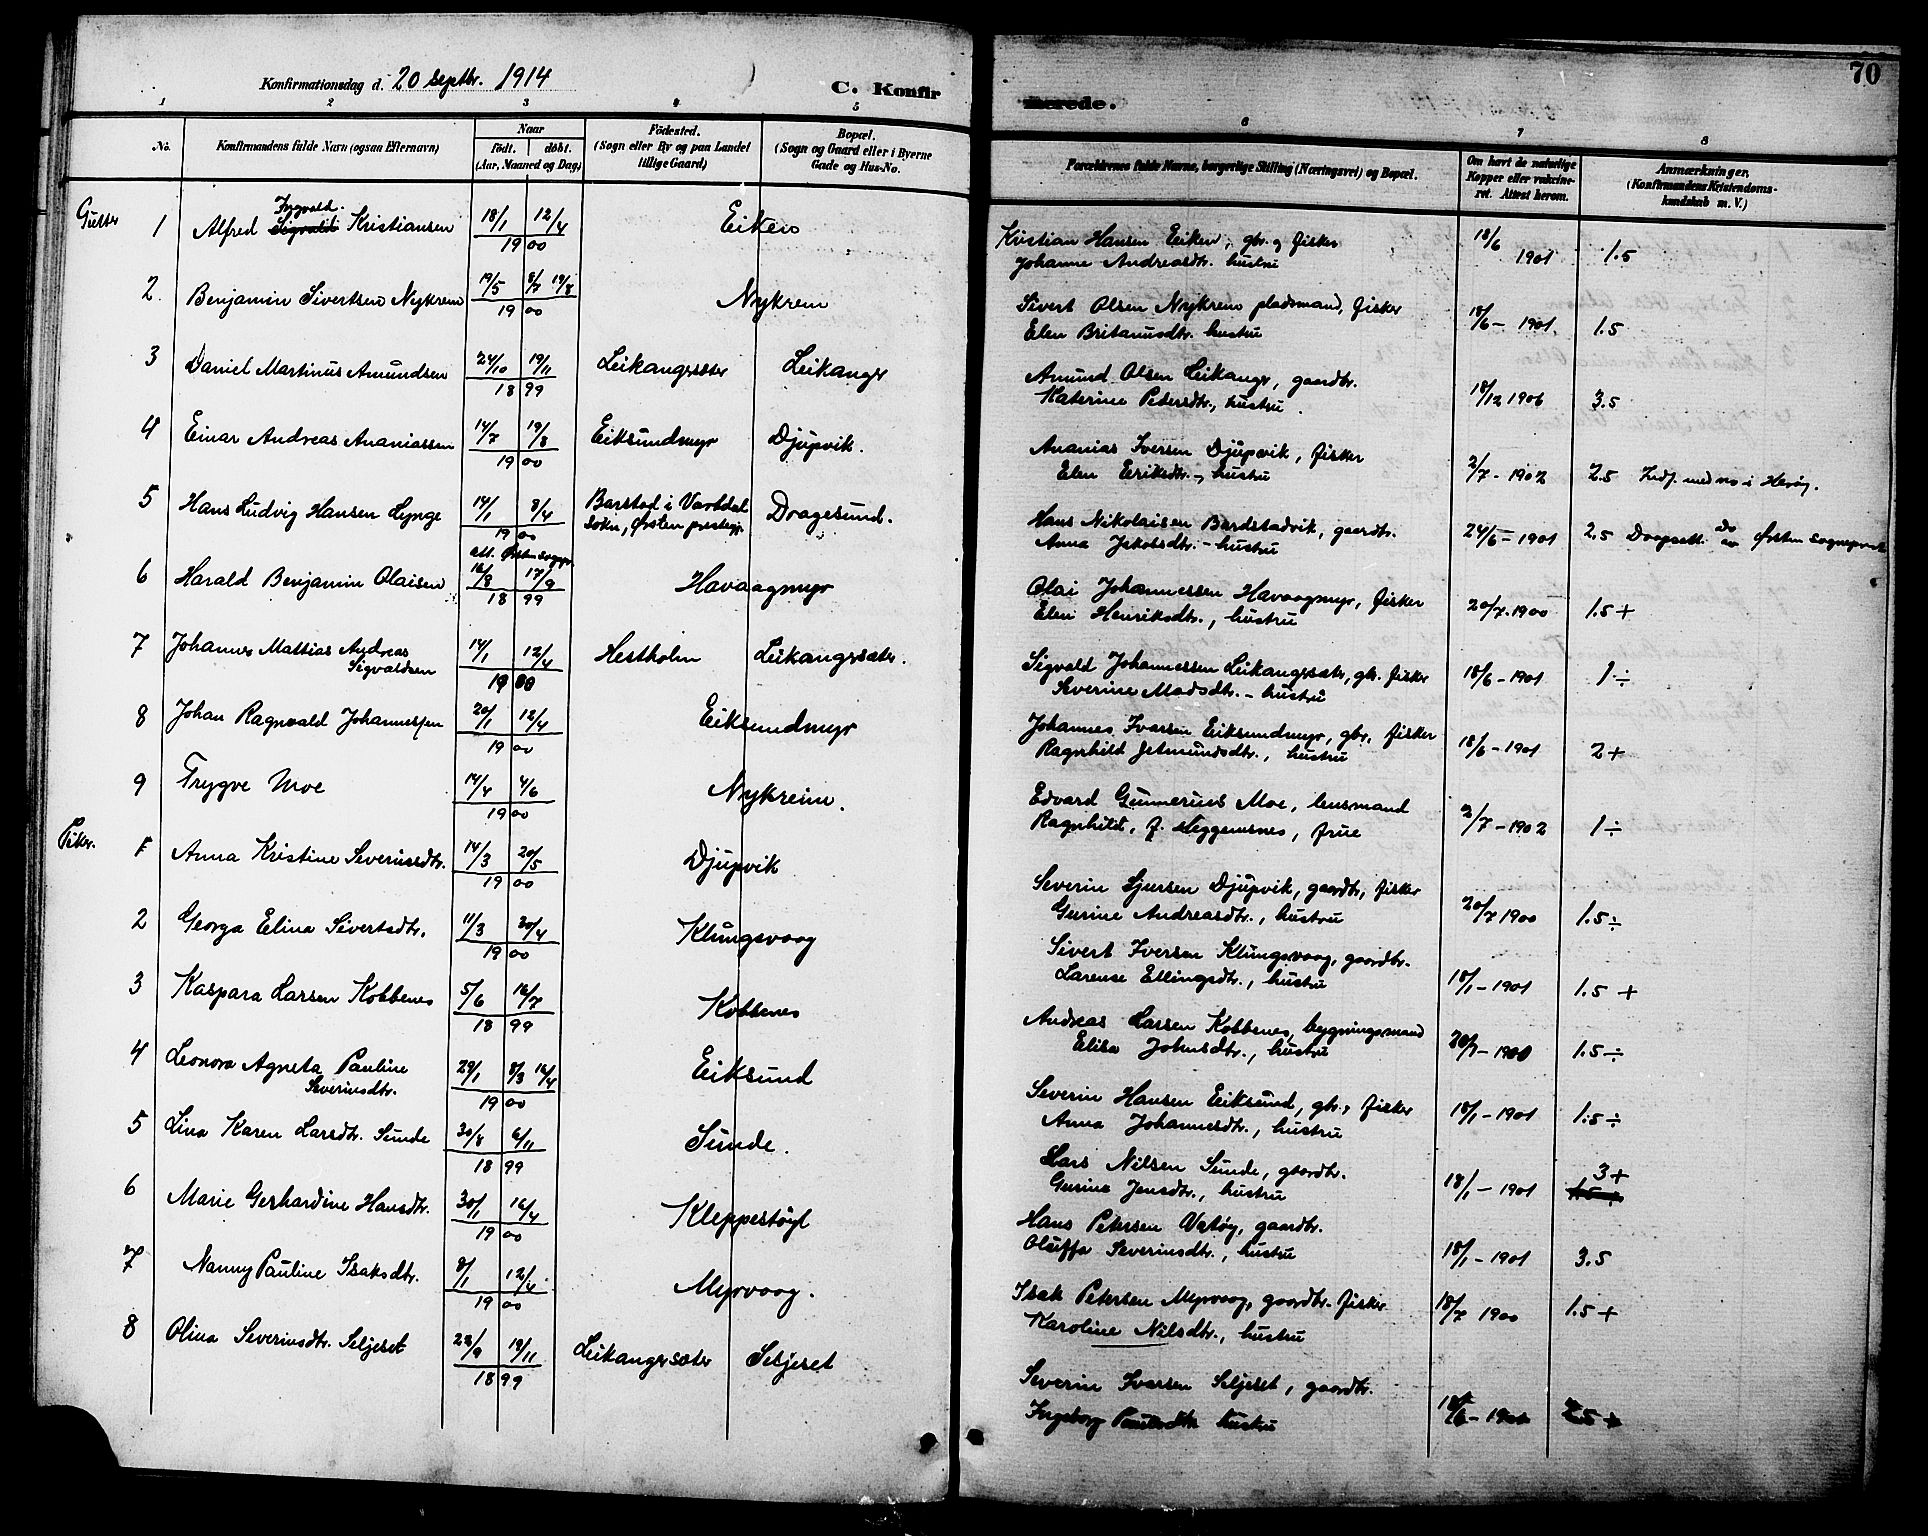 70
Konfirmationsdag d. 20 septbr. 1914
C. Konfirmerede.
1 2 3 4 5 6 7 8
No.
Konfirmandens fulde Navn (ogsaa Efternavn)
Naar
födt. döbt.
(Aar, Maaned og Dag.)
Födested.
(Sogn eller By og paa Landet
tillige Gaard)
Bopæl.
(Sogn og Gaard eller i Byerne
Gade og Hus-No.
Forældrenes fulde Navne, borgerlige Stilling (Næringsvei) og Bopæl.
Om havt de naturlige
Kopper eller vakcine-
ret. Attest herom.
Anmærkninger.
(Konfirmandens Kristendoms-
kundskab m. V.)
Gutter
1 Alfred Sigvald Ingvald. Kristiansen 18/1 12/4 1900 Eiken
Kristian Hansen Eiken, gbr. og fisker 18/6 1901 1.5
Johanne Andreasdtr. hustru
2. Benjamin Sivertsen Nykrem 19/5 8/7 19/8 1900 Nykrem
Sivert Olsen Nykrem pladsmand, fisker 18/6 - 1901. 1.5
Elen Britanusdtr. hustru
3 Daniel Martinus Amundsen 24/10 19/11 1899 Leikangersæter Leikanger
Amund Olsen Leikanger, gaardbr. 18/12 1906 3.5
Katerine Petersdtr., hustru.
4 Einar Andreas Ananiassen 14/7 19/8 1900 Eiksundmyr Djupvik.
Ananias Iversen Djupvik, fisker 2/7 - 1902 2.5 Indf. med no i Herøy.
Elen Eriksdtr. - hustru
5 Hans Ludvig Hansen Lynge 14/1 8/4 1900 Barstad i Vartdal Dragesund.
sokn, Ørsten prestegj.
att. Ørsten sogpr.
Hans Nikolaisen Bardstadvik, gaardbr. 24/6 - 1901 2.5 Daapsatt. av Ørsten sogneprest
Anna Jakobsdtr. - hustru
6 Harald Benjamin Olaisen 16/8 17/9 1899 Havaagmyr
Olai Johannessen Havaagmyr, fisker 20/7. 1900 1.5 +
Elen Henriksdtr., hustru
7 Johannes Mattias Andreas
Sigvaldsen 14/1 12/4 1900 Hestholm Leikangersæter.
Sigvald Johannessen Leikangersæter, gbr. fisker 18/6 - 1901 1 ÷
Severine Madsdtr. - hustru
8 Johan Ragnvald Johannessen 20/1 12/4 1900 Eiksundmyr
Johannes Ivarsen Eiksundmyr, gbr., fisker 18/6 - 1901 2 +
Ragnhild Jetmundsdtr., hustru
9 Trygve Moe 14/4 4/6 1900 Nykreim.
Edvard Gunnerius Moe, lensmand 2/7 - 1902 1 ÷
Ragnhild, f. Heggemsnes, frue
Piker.
1 Anna Kristine Severinsdtr. 14/3 20/5 1900 Djupvik
Severin Sjursen Djupvik, gaardbr., fisker 20/7 1900 1.5 ÷
Gurine Andreasdtr., hustru
2 Georga Elina Sivertsdtr. 11/3 20/4 1900 Klungsvaag
Sivert Iversen Klungsvaag, gaardbr. 18/1 - 1901 1.5 +
Larense Ellingsdtr., hustru
3 Kaspara Larsen Kobbenes 5/6 16/7 1899 Kobbenes
Andreas Larsen Kobbenes, bygningsmand 20/7 - 1900 1.5 ÷
Elisa Johnsdtr., hustru
4 Leonora Agneta Pauline
Severinsdtr. 29/1 8/3 16/4 1900 Eiksund
Severin Hansen Eiksund, gbr., fisker 18/1 - 1901 1.5 ÷
Anna Johannesdtr., hustru
5 Lina Karen Larsdtr. Sunde 30/8 6/11 1899 Sunde.
Lars Nilsen Sunde, gaardbr. 18/1 - 1901 3 + 1.5 +
Gurine Jensdtr., hustru
6 Marie Gerhardine Hansdtr. 30/1 16/4 1900 Kleppestøyl
Hans Petersen Vatøy, gaardbr. 18/1 - 1901 3.5
Oluffa Severinsdtr., hustru
7 Nanny Pauline Isaksdtr. 8/1 12/4 1900 Myrvaag.
Isak Petersen Myrvaag, gaardbr. fisker 18/7 1900 1.5 +
Karoline Nilsdtr., hustru
8 Olina Severinsdtr. Seljeset 23/9 19/11 1899 Leikangersæter Seljeset
Severin Ivarsen Seljeset, gaardbr. 18/6 - 1901 2.5 +
Ingeborg Paulsdtr. hustru